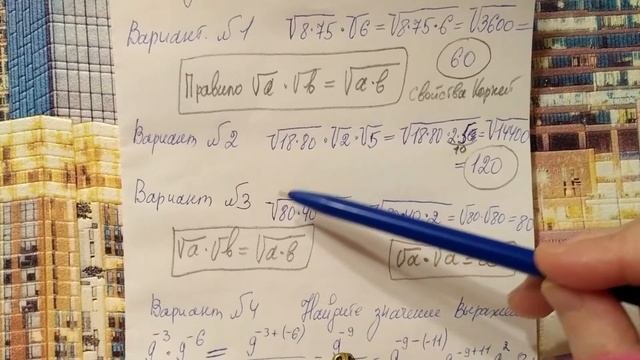 Вариант №1 √8·75 · √6 = √8·75·6 = √3600 =
60
Правило √a · √b = √a·b
свойства корней
Вариант №2 √18·80 · √2 · √5 = √18·80·2·5 = √14400
10
= 120
Вариант №3 √80·40 = √80·√80 = 80
√a · √b = √a·b √a · √a =
Вариант №4 Найдите значение выраже
9⁻³ · 9⁻⁶ = 9⁻³⁺⁽⁻⁶⁾ 9⁻⁹ 9⁻⁹⁻⁽⁻¹¹⁾ 9⁻⁹⁺¹¹ 9²